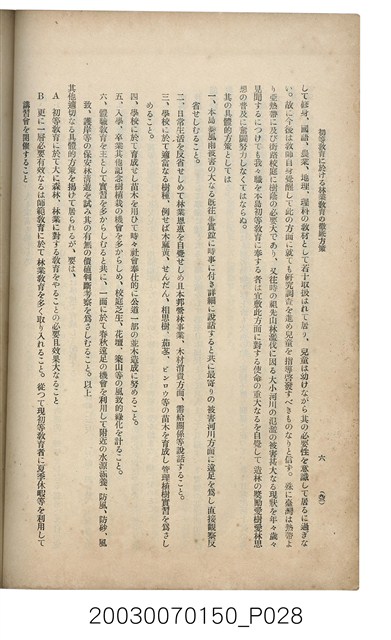 初等教育に於ける林業教育の徹底方策
六
して修身、國語、農業、地理、理科の教材として若干取扱はれて居り、兒童は幼けながら其の必要性を意識して居るに過ぎな
い。故に今後は教師自身覺醒して此の方面に就ても研究調査を進め兒童を指導啓發すべきものなりと信ず。殊に臺灣は熱帶よ
り亞熱帶に及び街路校庭に樹蔭の必要大であり、又往時の祖先山林濫伐に因る大小河川の氾濫の被害甚大なる現狀を年々歲々
見聞するにつけても我々職を本島初等教育に奉ずる者は宜敷此方面に對する使命の重大なるを自覺して造林の獎勵愛樹愛林思
想の普及に奮鬪努力しなくてはならぬ。
其の具體的方策としては
一、本島暴風雨被害の大なる既往事實竝に時事に付き詳細に說話すると共に最寄りの被害河川方面に遠足を爲し直接觀察反
省せしむること。
二、日常生活を反省せしめて林業恩惠を自覺せしめ且本邦營林事業、木材消費方面、需給關係等說話すること。
三、學校に於て適當なる樹種、例せば木麻黃、せんだん、相思樹、茄苳、ビンロウ等の苗木を育成し管理植樹實習を爲さし
めること。
四、學校に於て育成せし苗木を用ひて時々社會奉仕的に公道一部の並木造成に努めること。
五、入學、卒業其他記念樹植栽の機會を多からしめ、校庭芝生、花壇、築山等の風致的綠化を計ること。
六、體驗教育を主として實習を多からしむると共に、一面に於て春秋遠足の機會を利用して附近の水源涵養、防風、防砂、風
致、護岸等の保安林踏遊を試み其の有無の價値判斷考察を爲さしむること。以上
其他適切なる具體的方策を揭げて居られるが、要は、
A 初等教育に於て大に森林、林業に對する教育をやることの必要且效果大なること
B 更に一層必要有效なるは師範教育に於て林業教育を多く取り入れること。從つて現初等教育者に夏季休暇等を利用して
講習會を開催すること
20030070150_P028